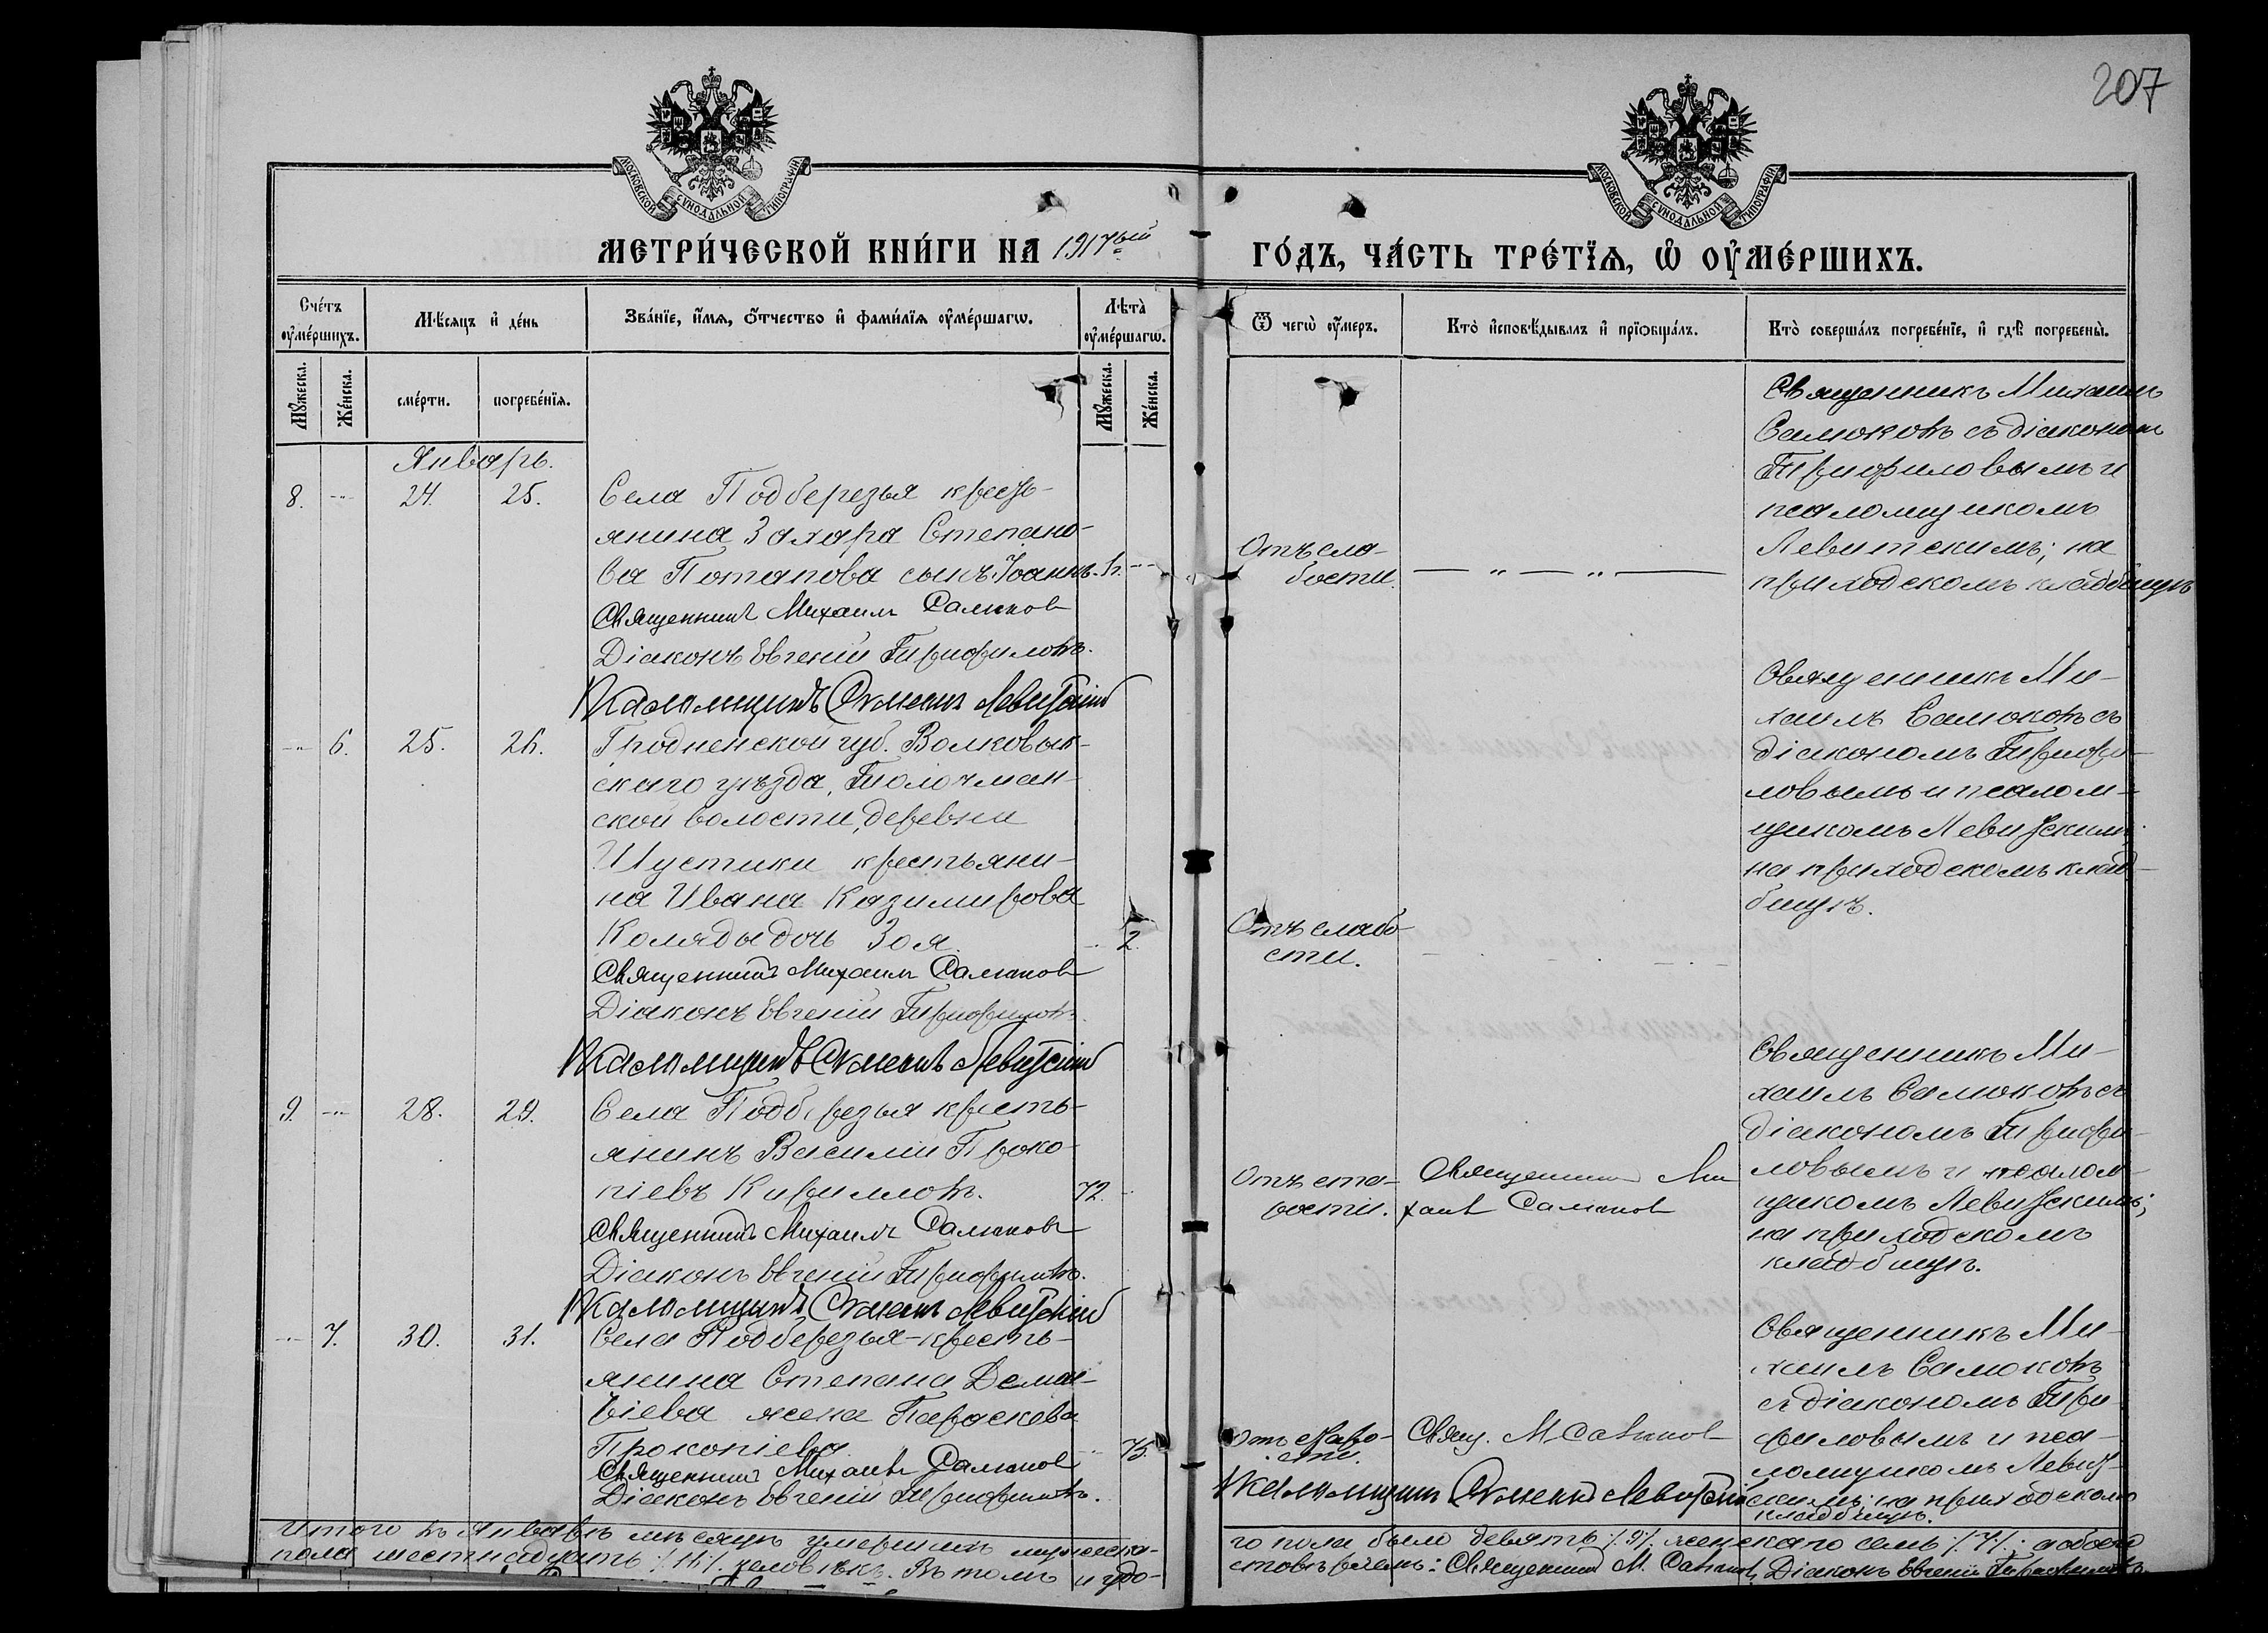 207
МОСКОВСКОЙ СѴНОДАЛЬНОЙ ТИПОГРАФІИ
МОСКОВСКОЙ СѴНОДАЛЬНОЙ ТИПОГРАФІИ
МЕТРИ́ЧЕСКОЙ КНИ́ГИ НА 1917ый
ГО́ДЪ, ЧА́СТЬ ТРЕ́ТЇѦ, Ѡ҆ ОУ҆МЕ́РШИХЪ.
Сче́тъ оу҆ме́ршихъ.
Мѣ́сяцъ и҆ де́нь
Зва́нїе, и҆́мѧ, ѻ҆́тчество и҆ фами́лїѧ оу҆ме́ршагѡ.
Лѣ́та оу҆ме́ршагѡ.
Ѿ чегѡ̀ оу҆́меръ.
Кто̀ и҆сповѣ́дывалъ и҆ прїѡбща́лъ.
Кто̀ соверша́лъ погребе́нїе, и҆ гдѣ̀ погребены̀.
Мꙋ́жеска.
Же́нска.
сме́рти.
погребе́нїѧ.
Мꙋ́жеска.
Же́нска.
Январь.
8. -"- 24. 25.
Села Подберезья кресть-
янина Захара Степано-
ва Потапова сынъ Іоаннъ.
Священникъ Михаилъ Самоков
Діаконъ Евгеній Трифиловъ.
Псаломщикъ Симеонъ Левитскій
Отъ сла-
бости.
— " — " —
Священникъ Михаилъ
Самоковъ съ діакономъ
Трифиловымъ и
псаломщикомъ
Левитскимъ; на
приходскомъ кладбищѣ
-"- 6. 25. 26.
Гродненской губ. Волковык-
скаго уѣзда, Толочман-
ской волости, деревни
Шустики крестьяни-
на Ивана Казимирова
Коляды дочь Зоя. 2.
Священникъ Михаилъ Самоков
Діаконъ Евгеній Трифиловъ.
Псаломщикъ Симеонъ Левитскій
Отъ слабо-
сти.
Священникъ Ми-
хаилъ Самоковъ съ
діакономъ Трифи-
ловымъ и псалом-
щикомъ Левитскимъ;
на приходскомъ клад-
бищѣ.
9. -"- 28. 29.
Села Подберезья кресть-
янинъ Василій Проко-
піевъ Кирилловъ. 72.
Священникъ Михаилъ Самоков
Діаконъ Евгеній Трифиловъ.
Псаломщикъ Симеонъ Левитскій
Отъ ста-
рости.
Священник Ми
хаил Самоков
Священникъ Ми-
хаилъ Самоковъ съ
діакономъ Трифи-
ловымъ и псалом-
щикомъ Левитскимъ;
на приходскомъ
кладбищѣ.
-"- 7. 30. 31.
Села Подберезья кресть-
янина Степана Демен-
тіева жена Параскева
Прокопіева. 75.
Священникъ Михаилъ Самоков
Діаконъ Евгеній Трифиловъ.
Отъ старо-
сти.
Свящ. М. Самоков
Псаломщикъ Симеонъ Левитскій
Священникъ Ми-
хаилъ Самоковъ
съ діакономъ Три-
филовымъ и пса-
ломщикомъ Левит-
скимъ; на приходскомъ
кладбищѣ.
Итого въ Январѣ мѣсяцѣ умершихъ мужеска-
го пола было девять /9/, женскаго семь /7/, а обоего
пола шестнадцать /16/ человѣкъ. Въ томъ и удо-
стовѣряемъ: Священник М. Самоков, Діаконъ Евгеній Трифиловъ.